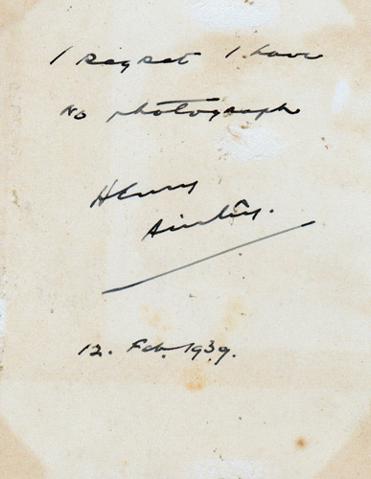 I regret I have
no photograph
Henry
Ainley.
12. Feb. 1939.